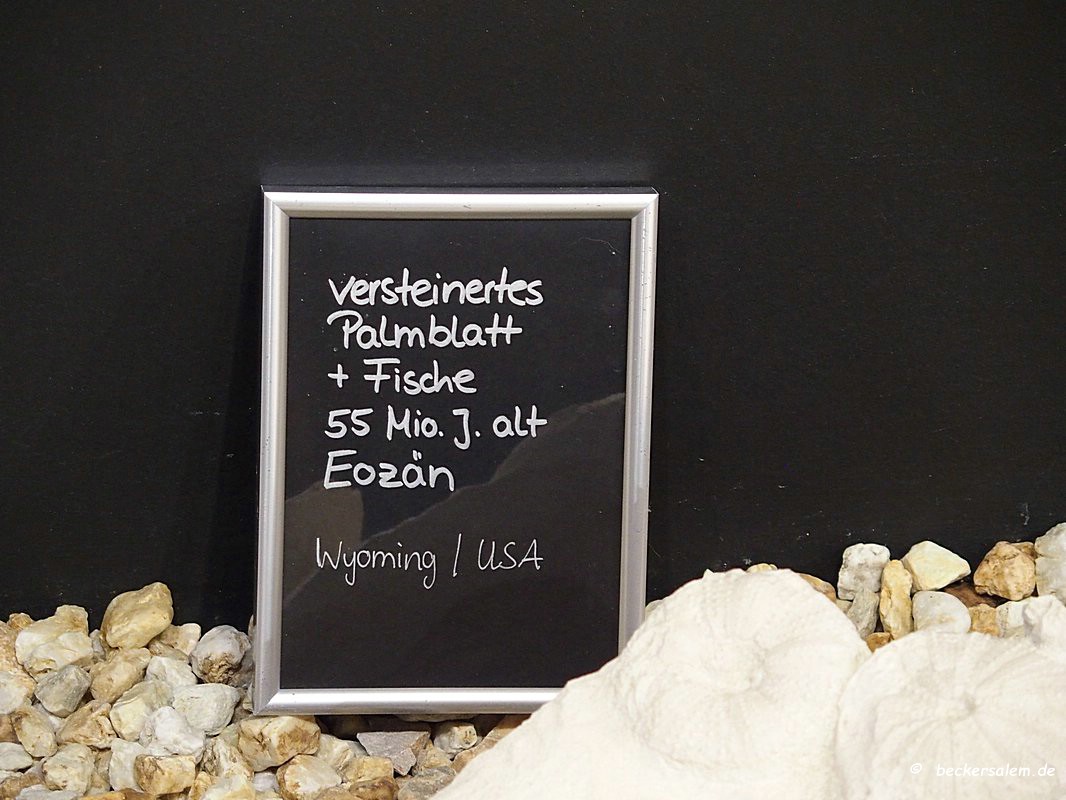 versteinertes
Palmblatt
+ Fische
55 Mio. J. alt
Eozän
Wyoming / USA
© beckersalem.de